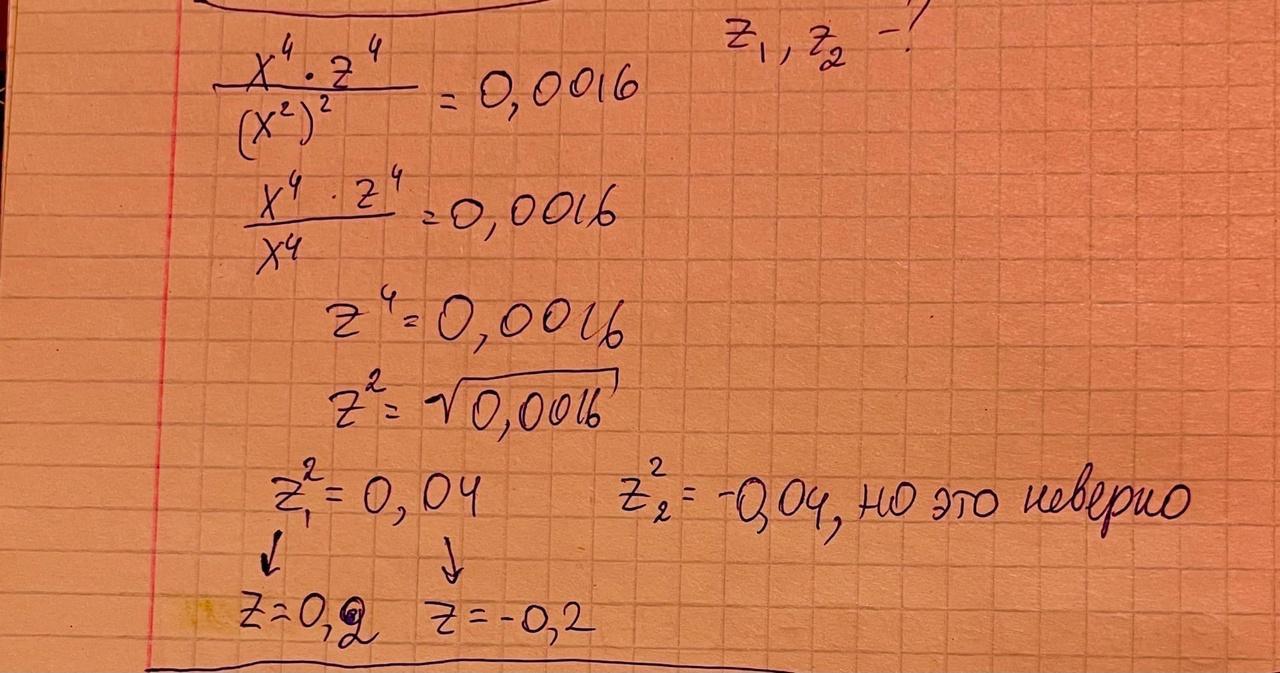 z₁, z₂ -?
x⁴ · z⁴
/ (x²)² = 0,0016
x⁴ · z⁴
/ x⁴ = 0,0016
z⁴ = 0,0016
z² = √0,0016
z₁² = 0,04 z₂² = -0,04, но это неверно
↓ ↓
z = 0,2 z = -0,2